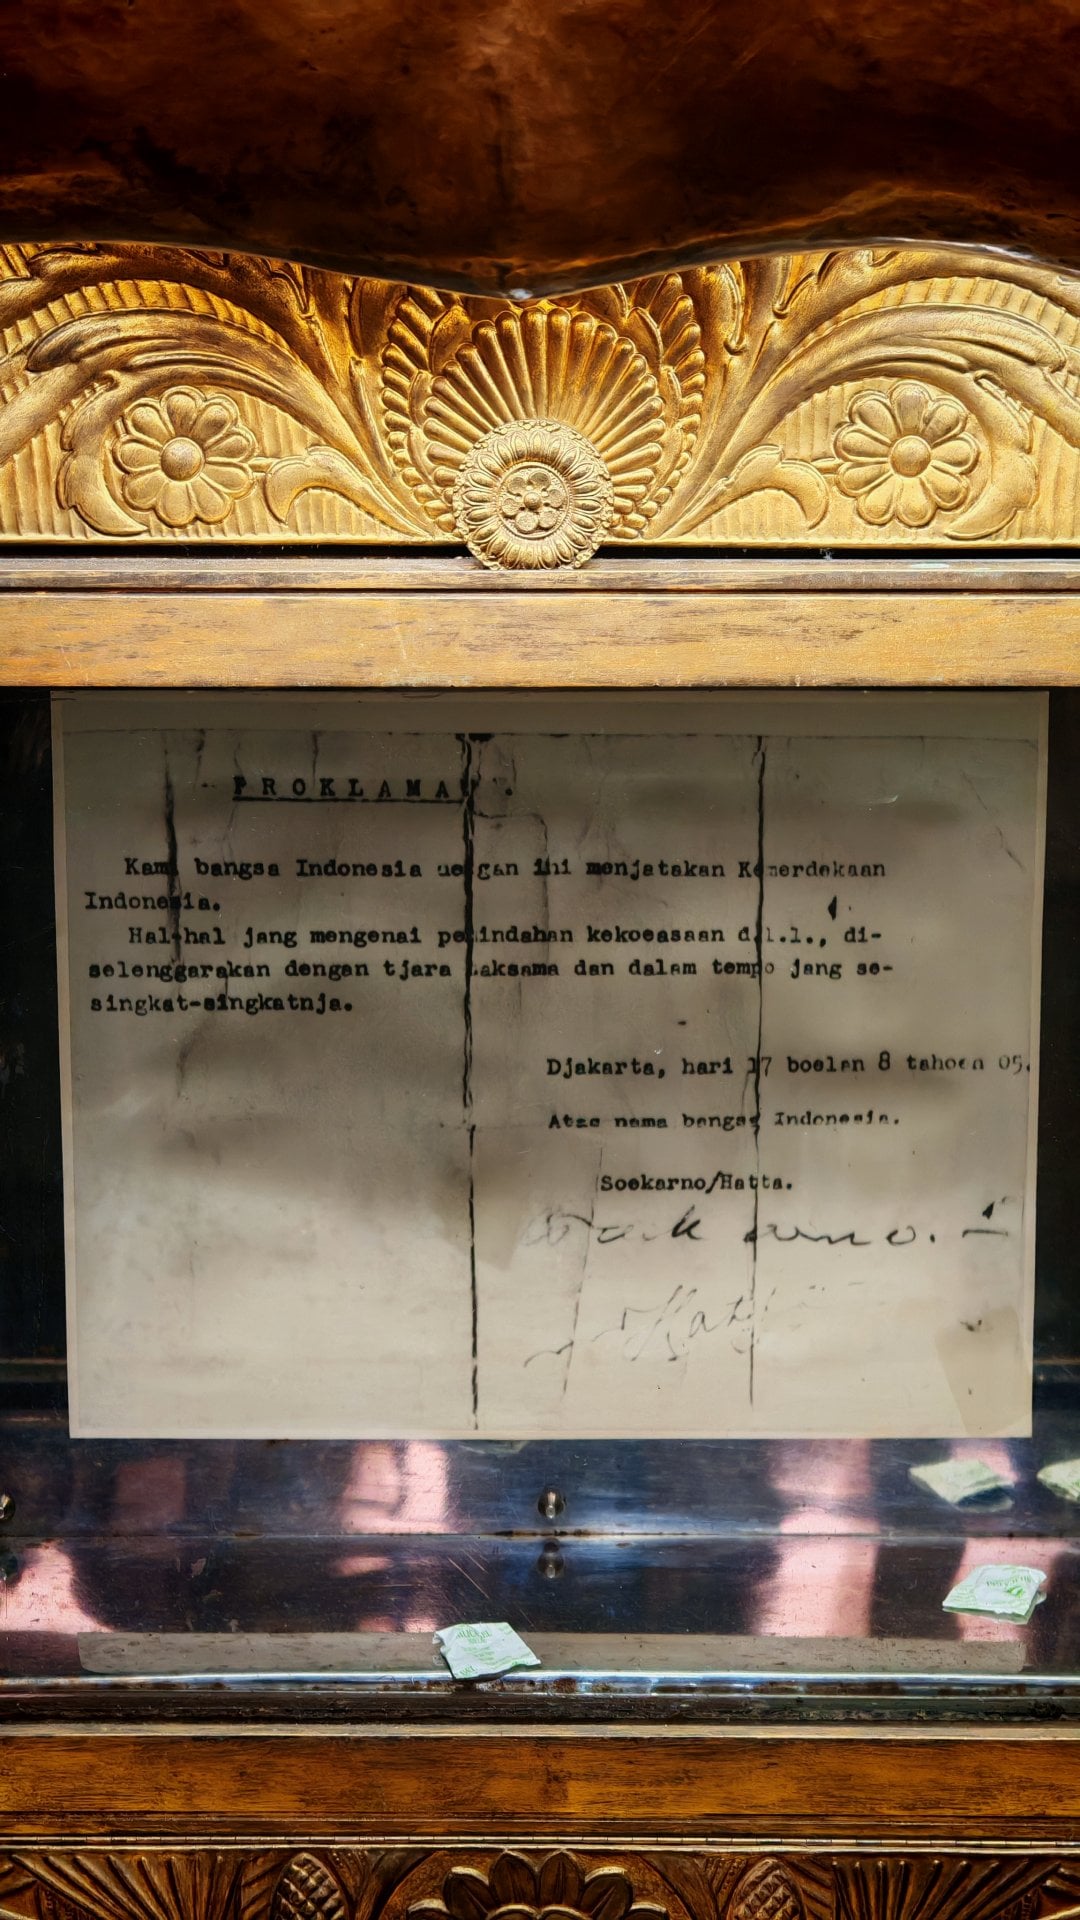 PROKLAMASI.
Kami bangsa Indonesia dengan ini menjatakan Kemerdekaan
Indonesia.
Hal-hal jang mengenai pemindahan kekoeasaan d.l.l., di-
selenggarakan dengan tjara saksama dan dalam tempo jang se-
singkat-singkatnja.
Djakarta, hari 17 boelan 8 tahoen 05.
Atas nama bangsa Indonesia.
Soekarno/Hatta.
Soekarno.
Hatta